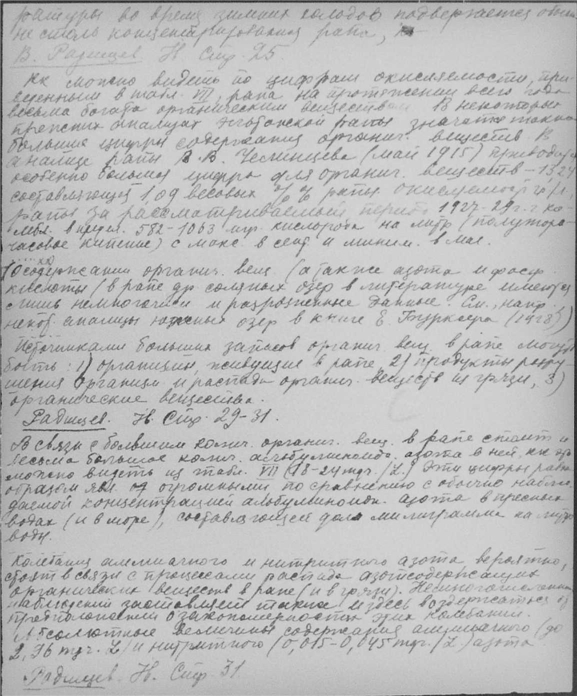 ратуры во время зимних холодов подвергается
не столь концентрированная рапа,
В. Радищев Н Стр. 25
Кк можно видеть по цифрам окисляемости, при
веденным в табл. VII, рапа на протяжении всего года
весьма богата органическим веществом. В некоторых
анализах рапы значатся также
большие цифры содержания органич. веществ В
анализе рапы В. В. Челинцева (май 1915) приводится
особенно большая цифра для органич. веществ
составляющая 1,09 весовых % % рапы окисляемость
рапы за рассматриваемый период 1927-29 г-г
582-1063 мгр. кислорода на литр (полутора-
часовое кипение) с макс. в сент и миним. в мае.
О содержании органич. вещ (а также азота и фосф.
кислоты) в рапе др соляных озер в литературе имеются
лишь немногочисл и разрозненные данные. См., напр.
некот. анализы озер в книге (1928)
Источниками больших запасов органич вещ. в рапе могут
быть: 1) организмы, живущие в рапе 2) продукты разру
шения организм. и распада органич. веществ из грязи, 3)
органические вещества.
Радищев. Н. Стр. 29-31.
В связи с большим колич. органич. вещ. в рапе стоит и
весьма большое колич. альбуминоидн. азота в ней, кк
можно видеть из табл. VII (18-24 мгр./L.) Эти цифры
образом явл огромными по сравнению с обычно наблю
даемой концентрацией альбуминоидн. азота в пресных
водах (и в море), составляющей доли миллиграмма на литр
воды.
Колебания аммиачного и нитритного азота вероятно,
стоят в связи с процессами распада азотсодержащих
органических веществ в рапе (и в грязи).
наблюдений заставляет также и здесь воздержаться от
предположений о закономерностях этих колебаний.
Абсолютные величины содержания аммиачного (до
2,76 мгр. L) и нитритного (0,015-0,045 мгр./L) азота
Радищев. Н. Стр 31